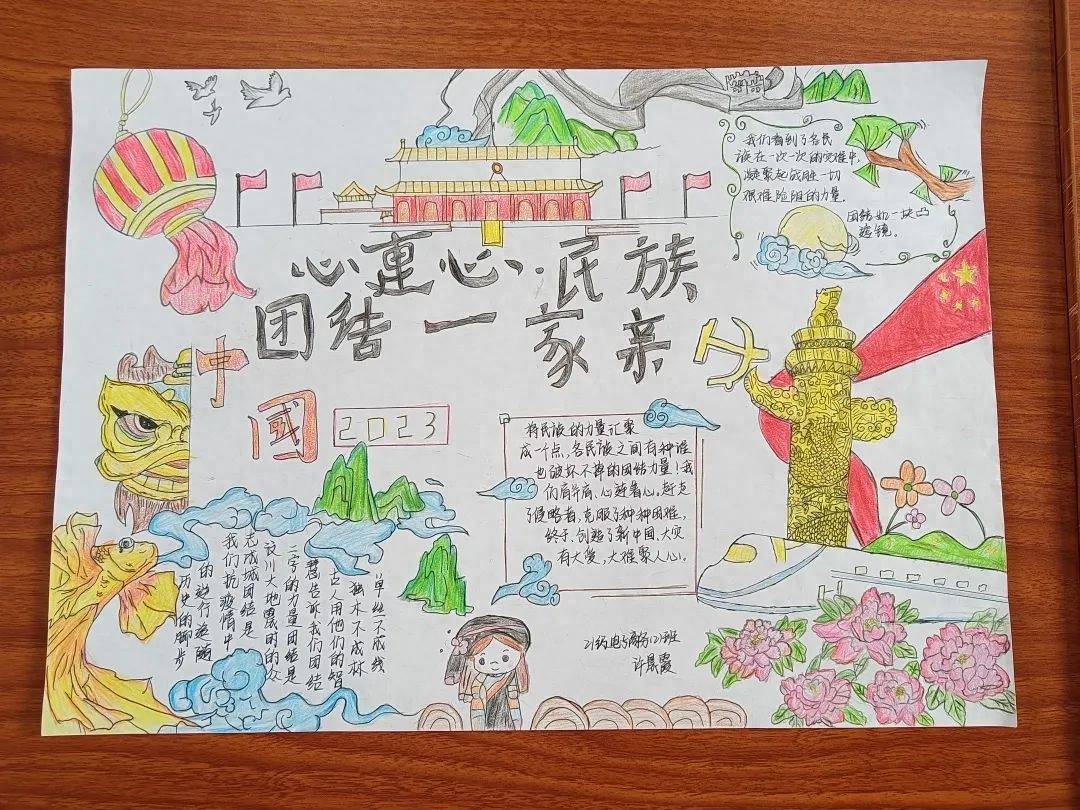 心连心·民族
团结一家亲
中
國
2023
我们看到了各民
族在一次一次的灾难中,
凝聚起战胜一切
艰难险阻的力量。
团结如一块凸
透镜。
将民族的力量汇聚
成一个点,各民族之间有种谁
也破坏不掉的团结力量!我
们肩并肩、心连着心,赶走
了侵略者,克服了种种困难,
终于,创造了新中国、大灾
有大爱,大难聚人心。
单丝不成线
独木不成林
古人用他们的智
慧告诉我们团结
二字的力量团结是
汶川大地震时的众
志成城团结是
我们抗疫情中
的逆行追随
历史的脚步
电子商务(2)班
许晟霞